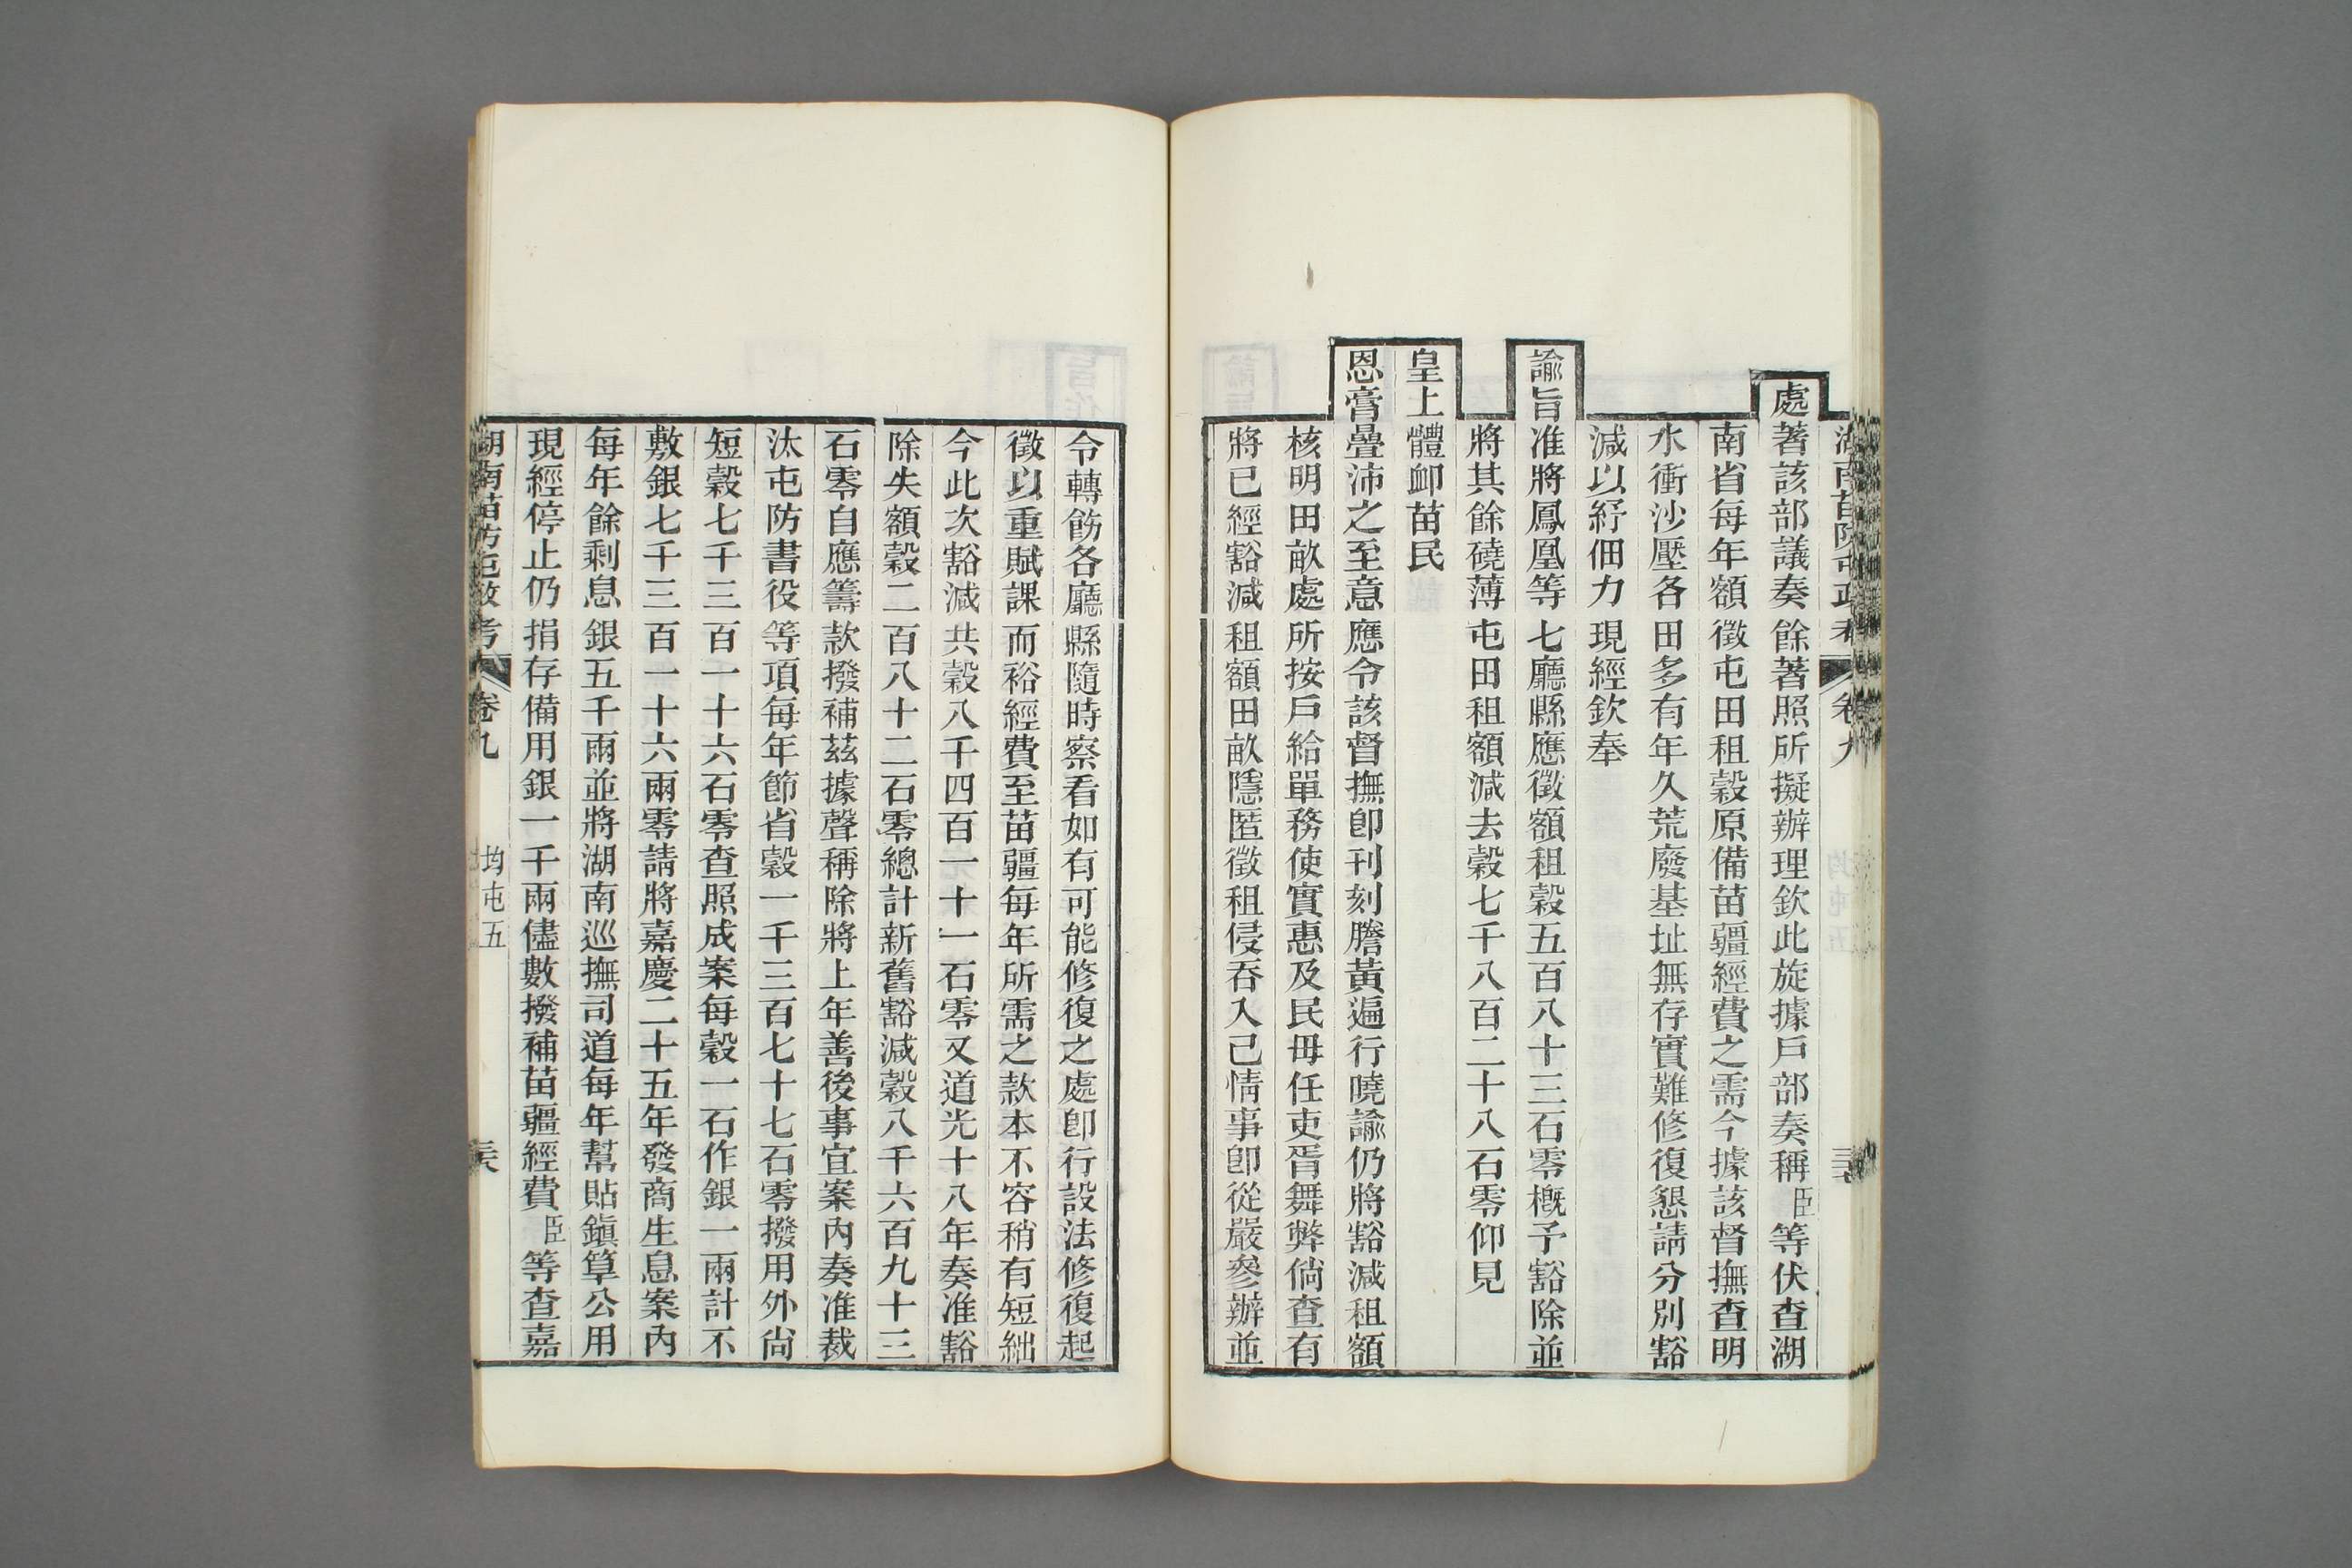 湖南苗防屯政考 卷九
處著該部議奏餘著照所擬辦理欽此旋據戶部奏稱臣等伏查湖
南省每年額徵屯田租穀原備苗疆經費之需今據該督撫查明
水衝沙壓各田多有年久荒廢基址無存實難修復懇請分別豁
減以紓佃力現經欽奉
諭旨准將鳳凰等七廳縣應徵額租穀五百八十三石零概予豁除並
將其餘磽薄屯田租額減去穀七千八百二十八石零仰見
皇上體卹苗民
恩膏疊沛之至意應令該督撫卽刊刻謄黃遍行曉諭仍將豁減租額
核明田畝處所按戶給單務使實惠及民毋任吏胥舞弊倘查有
將已經豁減租額田畝隱匿徵租侵吞入己情事卽從嚴參辦並
令轉飭各廳縣隨時察看如有可能修復之處卽行設法修復起
徵以重賦課而裕經費至苗疆每年所需之款本不容稍有短絀
今此次豁減共穀八千四百一十一石零又道光十八年奏准豁
除失額穀二百八十二石零總計新舊豁減穀八千六百九十三
石零自應籌款撥補茲據聲稱除將上年善後事宜案內奏准裁
汰屯防書役等項每年節省穀一千三百七十七石零撥用外尙
短穀七千三百一十六石零查照成案每穀一石作銀一兩計不
敷銀七千三百一十六兩零請將嘉慶二十五年發商生息案內
每年餘剩息銀五千兩並將湖南巡撫司道每年幫貼鎭筸公用
現經停止仍捐存備用銀一千兩儘數撥補苗疆經費臣等查嘉
湖南苗防屯政考 卷九 均屯五